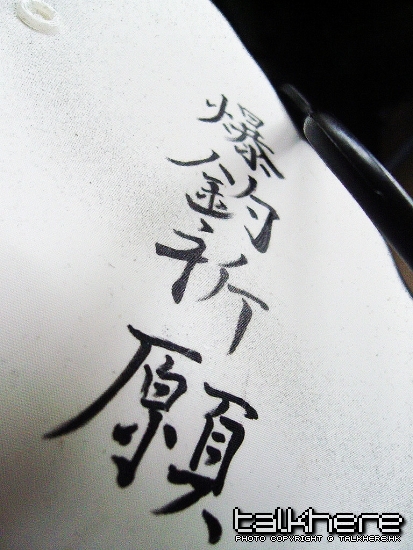 爆鈞祈願
talkhere
PHOTO COPYRIGHT © TALKHERE.HK